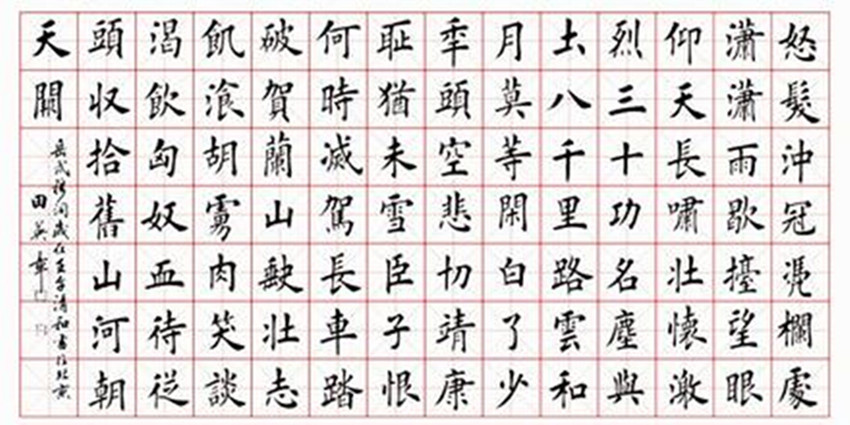 怒髮沖冠凴欄處
瀟瀟雨歇擡望眼
仰天長嘯壯懷激
烈三十功名塵與
土八千里路雲和
月莫等閑白了少
年頭空悲切靖康
耻猶未雪臣子恨
何時滅駕長車踏
破賀蘭山缺壯志
飢飡胡虜肉笑談
渴飲匈奴血待從
頭收拾舊山河朝
天闕
岳武穆詞歲在壬午清和書於北京
田英章